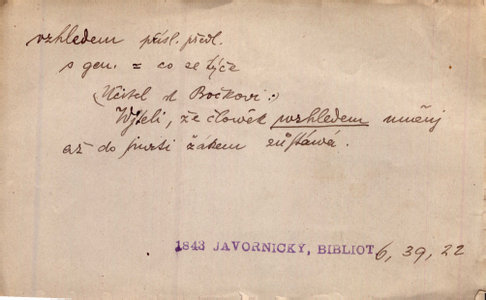 vzhledem přísl. předl.
s gen. = co se týče
(Učitel k Bočkovi:)
Wjteli, že člowěk wzhledem uměnj
až do smrti žákem zůstáwá.
1843 JAVORNICKÝ, BIBLIOT 6, 39, 22